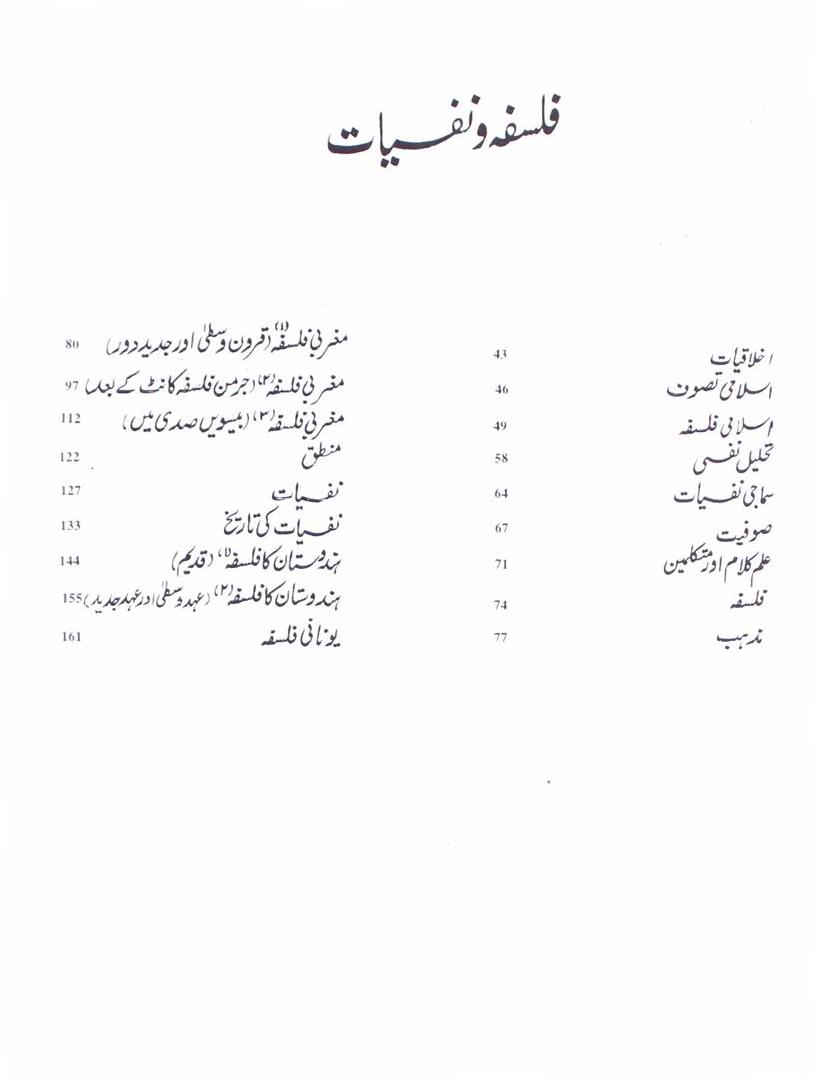 فلسفہ و نفسیات
اخلاقیات 43
اسلامی تصوف 46
اسلامی فلسفہ 49
تحلیل نفسی 58
سماجی نفسیات 64
صوفیت 67
علم کلام اور متکلمین 71
فلسفہ 74
مذہب 77
مغربی فلسفہ (۱) (قرون وسطیٰ اور جدید دور) 80
مغربی فلسفہ (۲) (جرمن فلسفہ کانٹ کے بعد) 97
مغربی فلسفہ (۳) (بیسویں صدی میں) 112
منطق 122
نفسیات 127
نفسیات کی تاریخ 133
ہندوستان کا فلسفہ (۱) (قدیم) 144
ہندوستان کا فلسفہ (۲) (عہد وسطیٰ اور عہد جدید) 155
یونانی فلسفہ 161